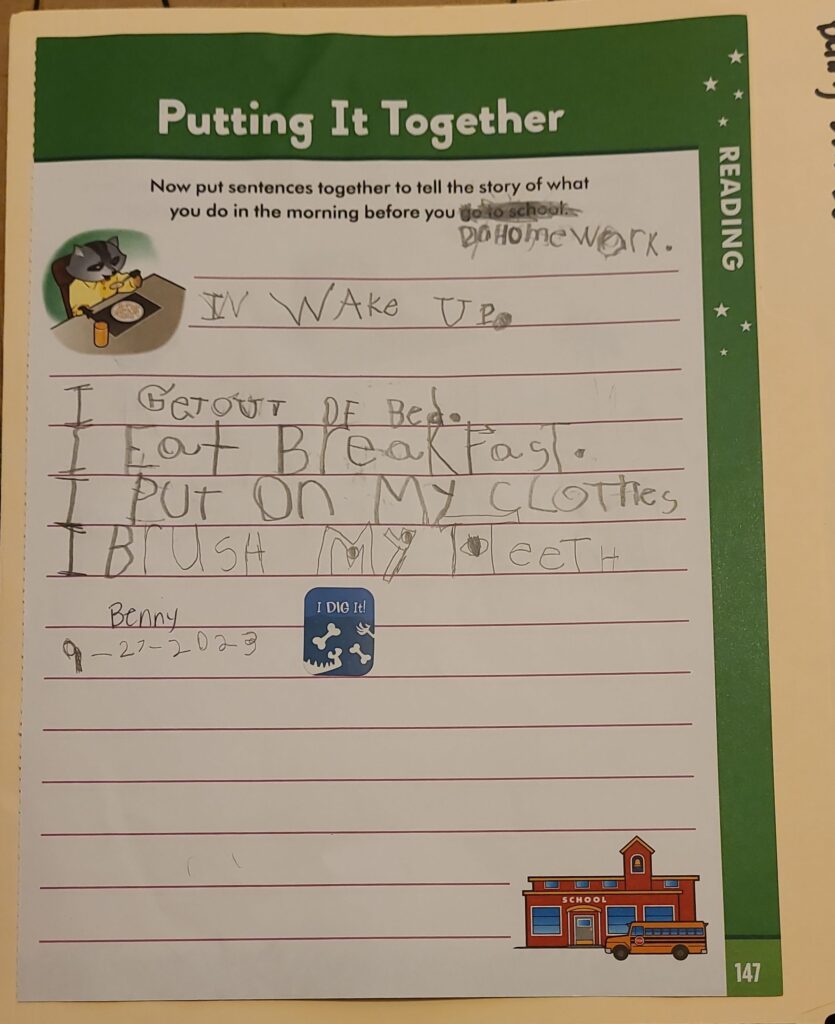 Putting It Together
Now put sentences together to tell the story of what
you do in the morning before you go to school.
DO HOmewOrk.
IN WAke UP.
I GeTOUT OF Bed.
I Eat BreakFasT.
I PUT ON MY CLOTHes
I BrUSH MY TeeTH
Benny
I DIG It!
9-27-2023
READING
SCHOOL
147